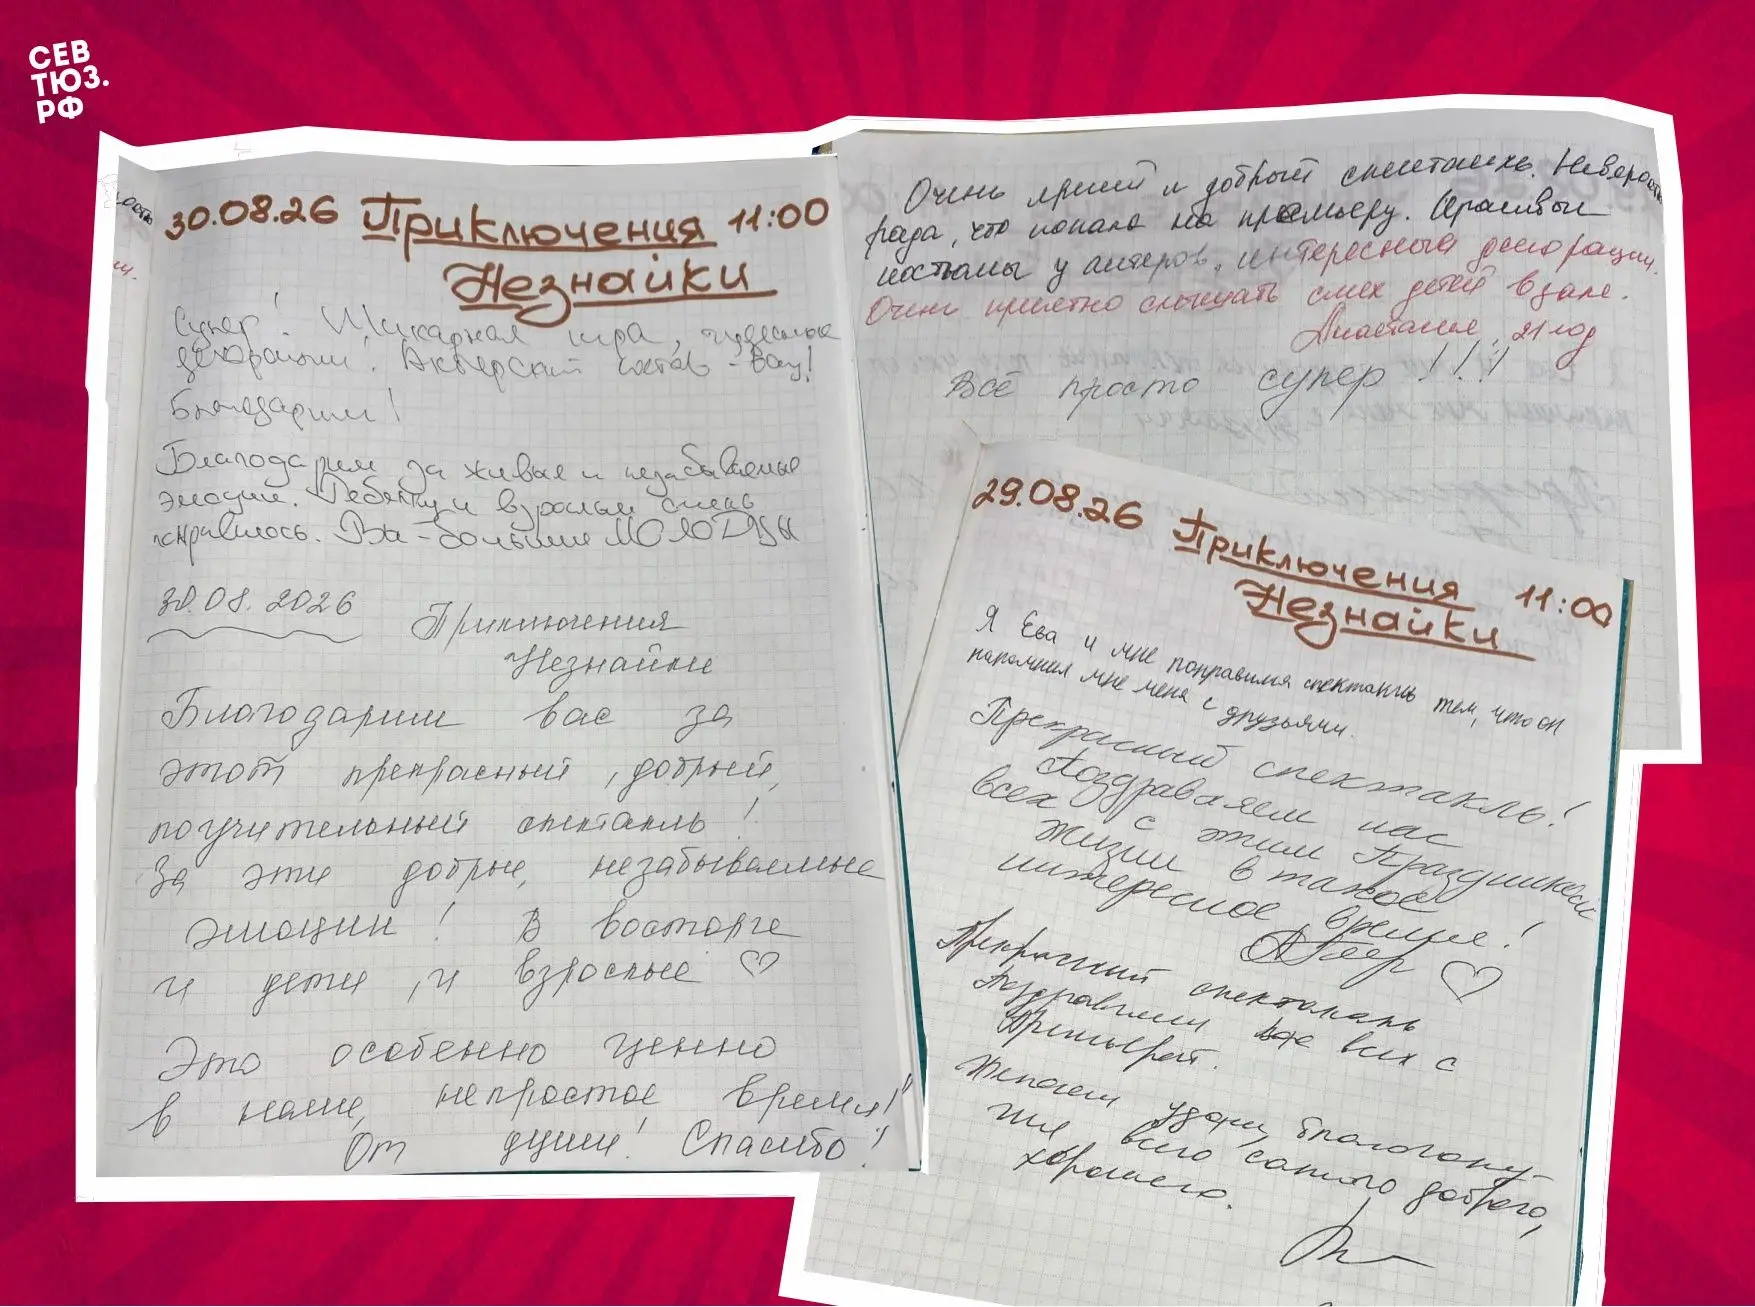 СЕВ
ТЮЗ.
РФ
30.08.26 Приключения 11:00
Незнайки
Супер! Шикарная игра, чудесные
декорации! Актерский состав - Вау!
Благодарим!
Благодарим за живые и незабываемые
эмоции. Ребятку и взрослым очень
понравилось. Вы - большие МОЛОДЦЫ
30.08.2026
Приключения
Незнайки
Благодарим вас за
этот прекрасный, добрый,
поучительный спектакль!
За эти добрые, незабываемые
эмоции! В восторге
и дети, и взрослые ♡
Это особенно ценно
в наше, непростое время!
От души! Спасибо!
Очень яркий и добрый спектакль. Невероятно
рада, что попала на премьеру. Красивые
костюмы у актеров, интересные декорации.
Очень приятно слышать смех детей в зале.
Анастасия, 21 год
Всё просто супер!!!
29.08.26 Приключения 11:00
Незнайки
Я Ева и мне понравился спектакль тем, что он
напомнил мне меня с друзьями.
Прекрасный спектакль!
Поздравляем нас
всех с этим Праздником
жизни в такое
интересное время!
Прекрасный спектакль
Поздравляем всех с
Премьерой.
Желаем удачи, благополу-
чия всего самого доброго,
хорошего.